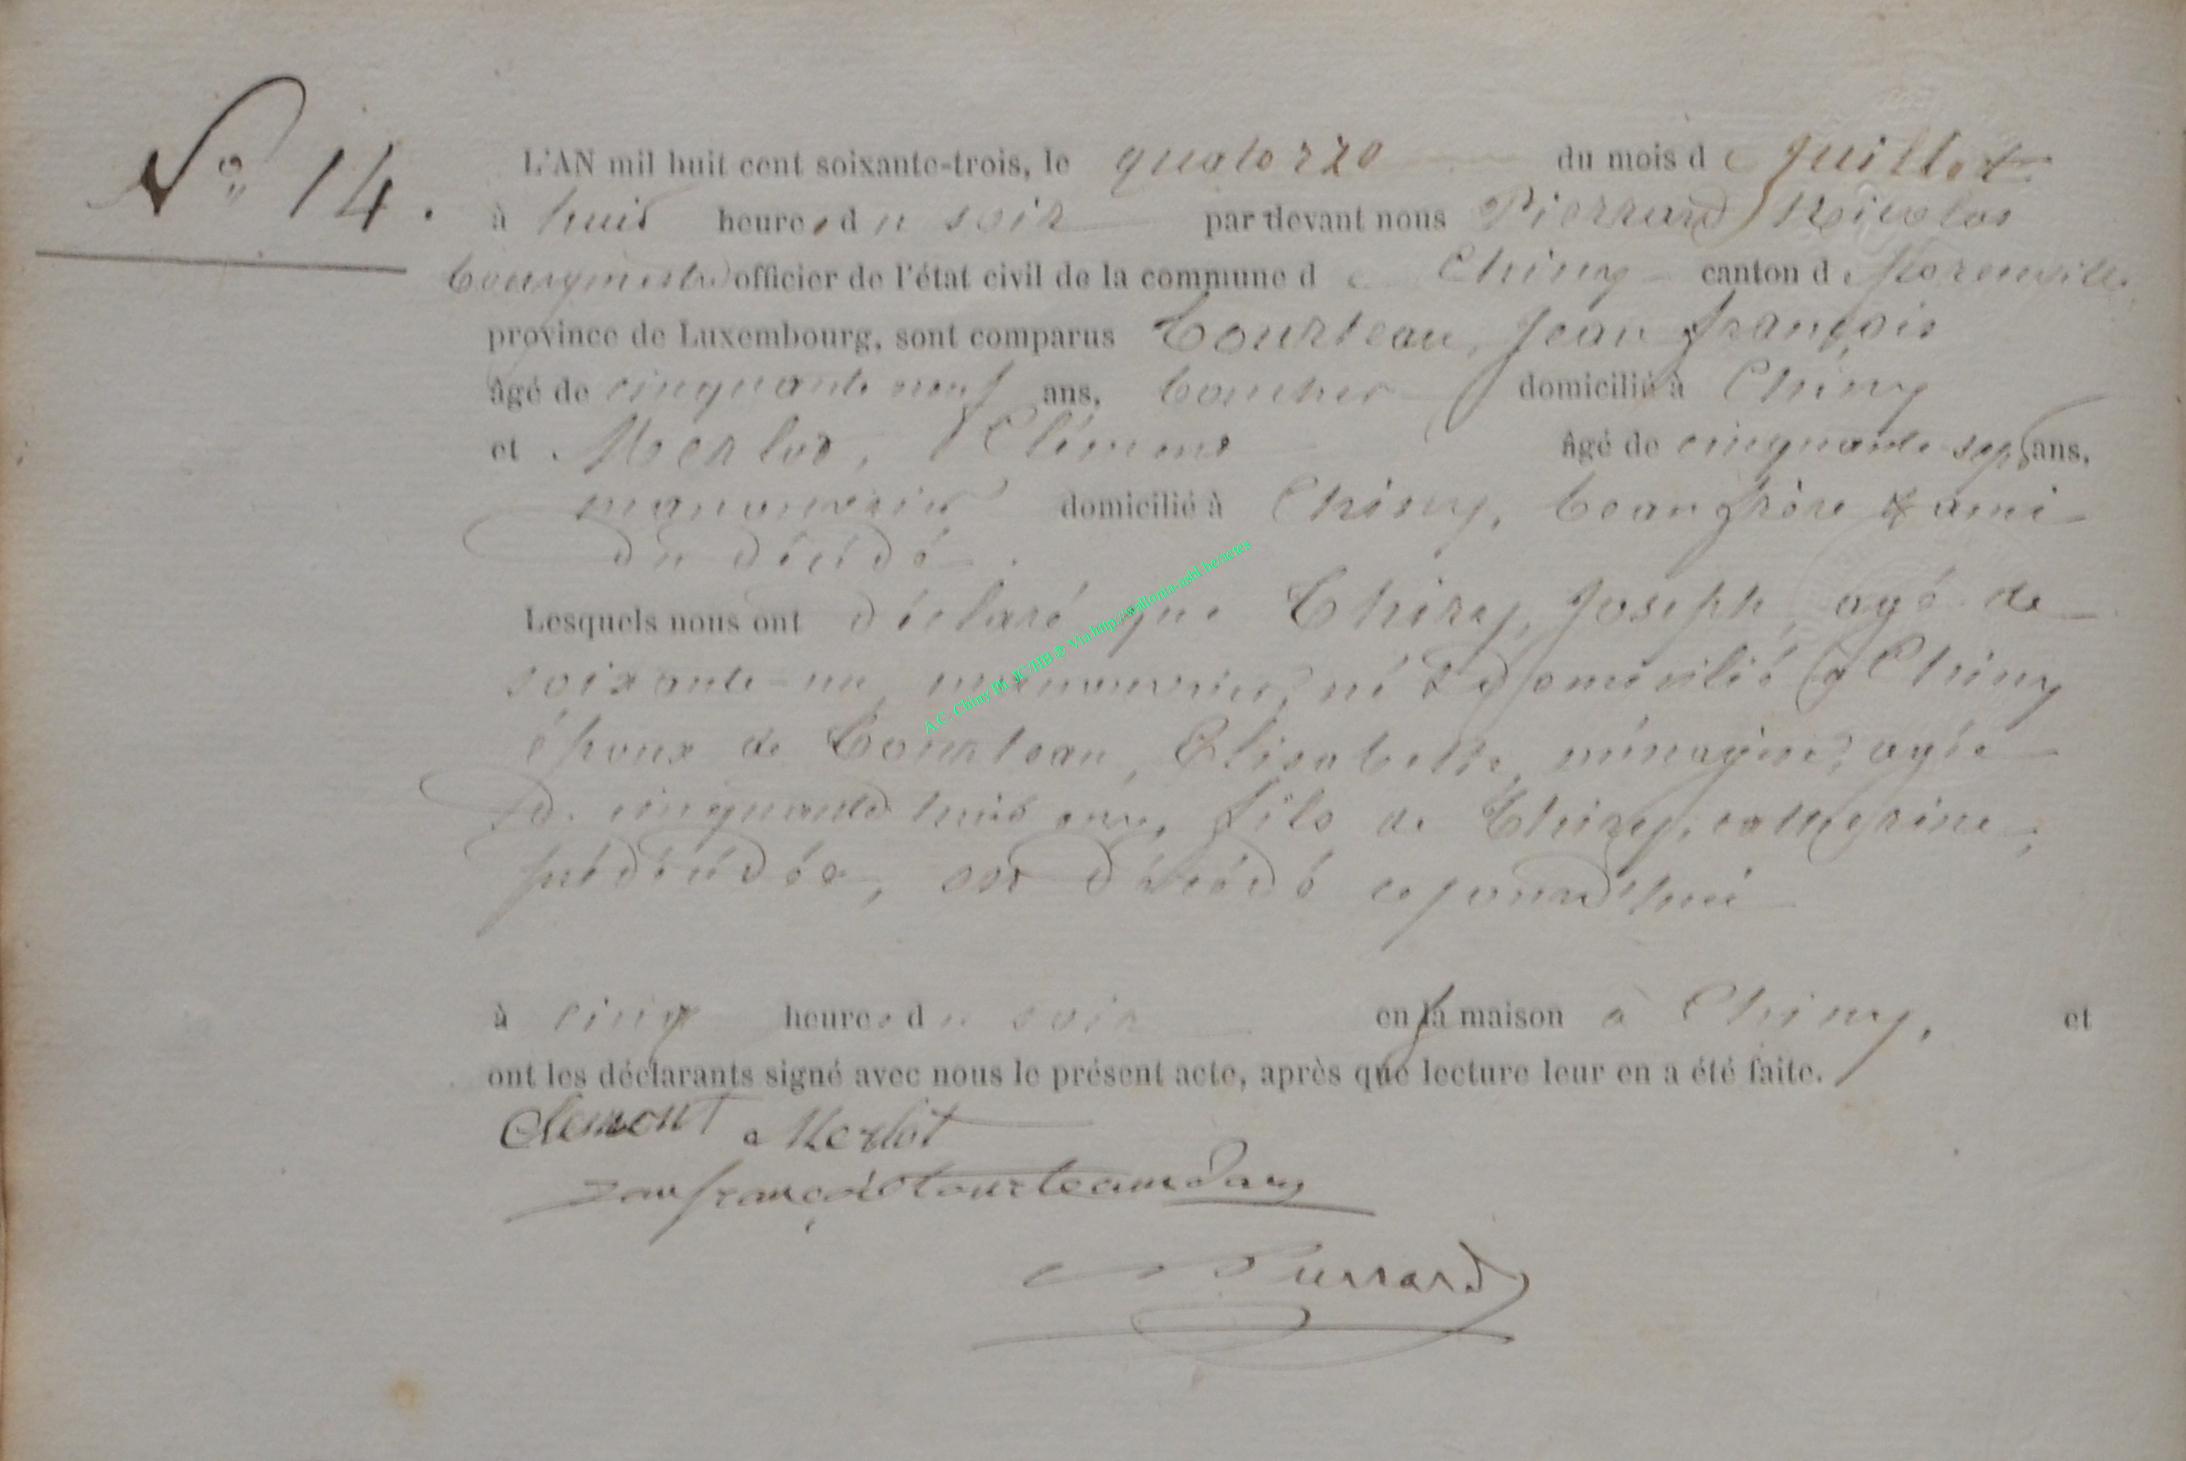 N° 14.
L'AN mil huit cent soixante-trois, le quatorze du mois de juillet
à huit heures du soir par devant nous Pierrard, Nicolas
bourgmestre officier de l'état civil de la commune de Chiny canton de Florenville
province de Luxembourg, sont comparus Tourteau, Jean françois
âgé de cinquante neuf ans, boucher domicilié à Chiny
et Merlot, Clément âgé de cinquante-sept ans,
manouvrier domicilié à Chiny, beau frère & ami
du décédé.
Lesquels nous ont déclaré que Thiry, Joseph, agé de
soixante-un, manouvrier, né & domicilié à Chiny
époux de Tourteau, Elisabethe, ménagère, agée
de cinquante huit ans, fils de Thiry, catherine,
prédécédée, est décédé cejourd'hui
à cinq heures du soir en sa maison à Chiny, et
ont les déclarants signé avec nous le présent acte, après que lecture leur en a été faite.
Clement Merlot
Jean françois tourteau
Pierrard
A.C. Chiny Ph. JC/HB @ Via http://wallonia-asbl.be/actes